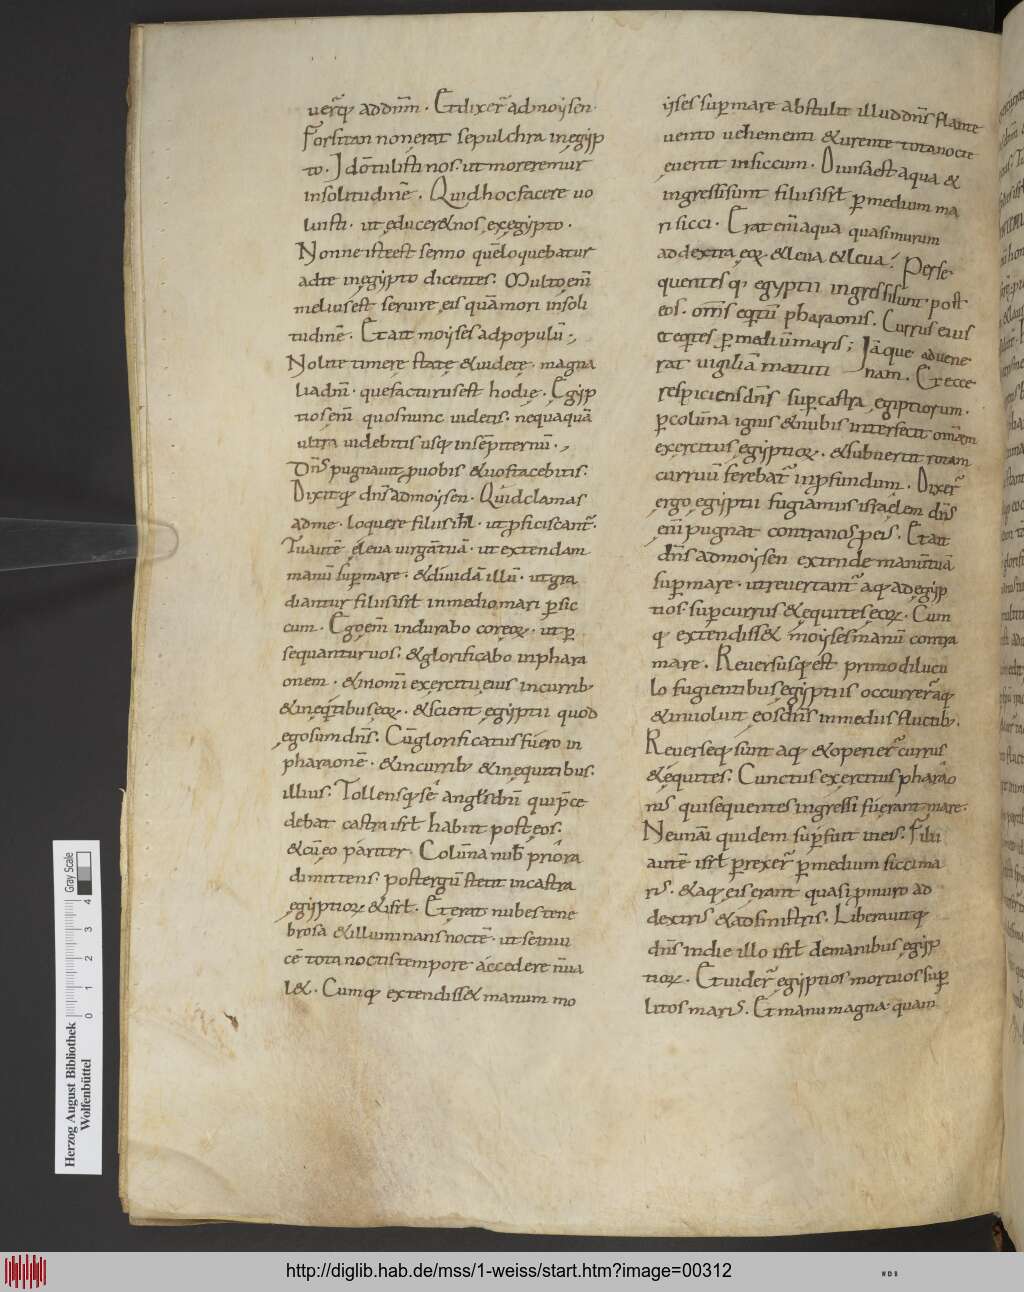 uer̄ q; ad dn̄m · Et dixer̄ ad moẏsen ·
Forsitan non erat sepulchra in egẏp
to · Ido tulisti nos · ut moreremur
in solitudinē · Quid hoc facere uo
luisti · ut educer& nos ex egẏpto ·
Nonne iste est sermo quē loquebatur
ad te in egẏpto dicentes · Multo enī
melius est seruire eis quā mori in soli
tudinē · Et ait moẏses ad populū ·,
Nolite timere state & uidete · magna
lia dnī · que facturus est hodie · Egẏp
tios enī quos nunc uidetis · nequaquā
ultra uidebitis usq; in sēpiternū ·,
Dn̄s pugnauit p uobis & uos tacebitis ·
Dixitq; dn̄s ad moẏsen · Quid clamas
ad me · loquere filiis isrl̄ · ut pficiscant̄ ·
Tu autē eleua uirgā tuā · ut extendam
manū sup mare · & diuidā illū · ut gra
diantur filii isrl̄ in medio mari p sic
cum · Ego enī indurabo cor eoꝝ · ut p
sequantur uos · & glorificabo in phara
onem · & in omī exercitu eius in currib;
& in eqtibus eoꝝ · & scient egẏptii quod
ego sum dn̄s · Cū glorificatus fuero in
pharaonē · & in currib; & in equitibus ·
illius · Tollensq; se angls dn̄i qui p̄ce
debat castra isrl̄ habiit post eos ·
& cū eo pariter · Colūna nub̄ priora
dimittens · post tergū stetit in castra
egẏptioꝝ & isrl̄ · Et erat nubes tene
brosa & illuminans noctē · ut se inui
cē tota noctis tempore accedere nūa
l& · Cumq; extendiss& manum mo
ẏses sup mare abstulit illud dn̄s flante
uento uehementi & urente tota nocte
euertit in siccum · Diuisa est aqua &
ingressi sunt filii isrl̄ p medium ma
ri sicci · Erat enī aqua quasi murum
ad dextra eoꝝ · & leua & leua · Perse
quentes q; egẏptii ingressi sunt post
eos · om̄s eqtū pharaonis · Currus eius
et eqtes p mediū maris ; Iā que aduene
rat uigiliā matuti nam · Et ecce
respiciens dn̄s sup castra egiptiorum ·
p colūna ignis & nubis interfecit om̄em
exercitus egẏptioꝝ · & subuertit rotam
curruū ferebat̄ in pfundum · Dixer̄
ergo egẏptii fugiamus israelem dn̄s
enī pugnat contra nos p eis · Et ait
dn̄s ad moẏsen extende manū tuā
sup mare · ut reuertant̄ aq; ad egẏp
tios sup currus & equites eoꝝ · Cum
q; extendiss& moẏses manū contra
mare · Reuersusq; est primo dilucu
lo fugientibus egẏptiis occurrer̄ aq;
& inuoluit eos dn̄s in mediis fluctib; ·
Reuerseq; sunt aq; & operier̄ currus
& equites · Cunctus exercitus pharao
nis qui sequentes ingressi fuerant mare ·
Ne unāi quidem supfuit in eis · Filii
autē isrl̄ prexer̄ p medium sicci ma
ris · & aq; eis erant quasi p muro ad
dextris & ad sinistris · Liberauitq;
dn̄s in die illo isrl̄ de manibus egẏp
tioꝝ · Et uider̄ egẏptios mortuos sup
litos maris · Et manu magna · quam
Herzog August Bibliothek
Wolfenbüttel
0 1 2 3 4
Gray Scale
http://diglib.hab.de/mss/1-weiss/start.htm?image=00312